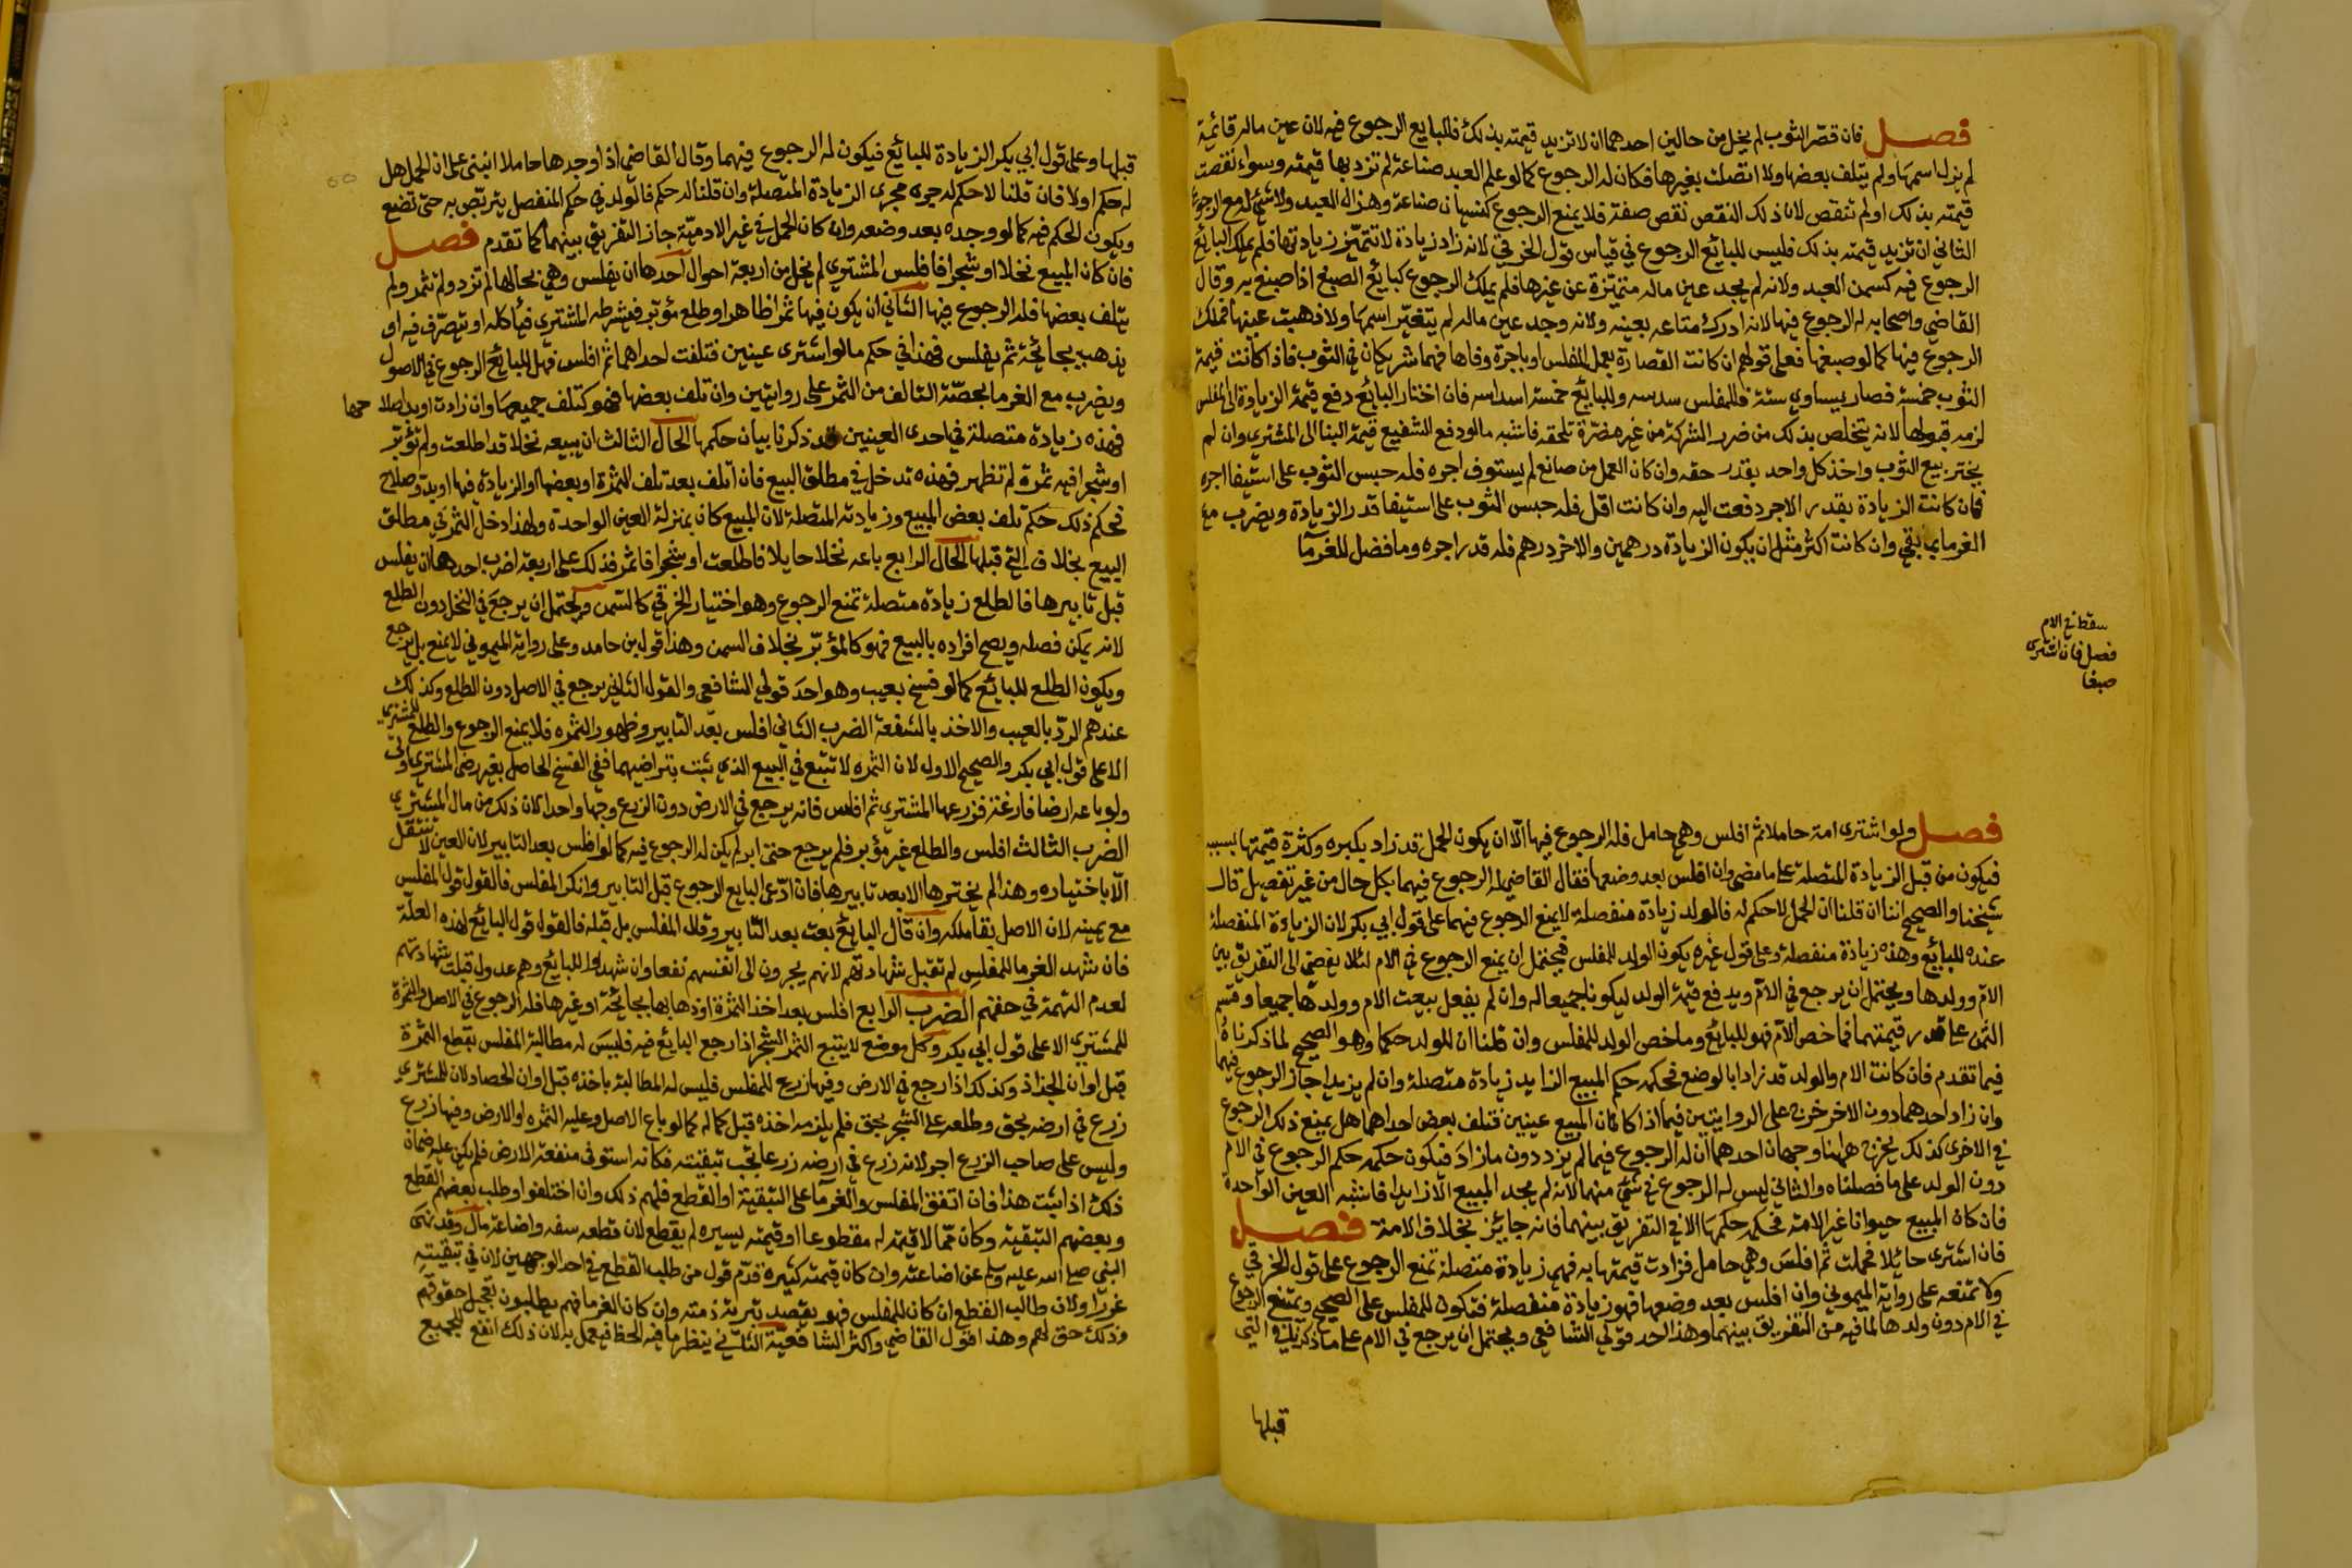 فصل فان قصر الثوب لم يخل من حالين احدهما ان لا تزيد قيمته بذلك فللبايع الرجوع فيه لان عين ماله قائمة
لم يزل اسمها ولم يتلف بعضها ولا اتصلت بغيرها فكان له الرجوع كما لو علم العبد صناعة لم تزد بها قيمته وسواء نقصت
قيمته بذلك او لم تنقص لان ذلك النقص نقص صفة فلا يمنع الرجوع كنسيان صناعة وهزال العبد ولا شئ له مع الرجوع
الثاني ان تزيد قيمته بذلك فليس للبائع الرجوع في قياس قول الخرقي لانه زاد زيادة لا تتميز زيادتها فلم يملك البائع
الرجوع فيه كسمن العبد ولانه لم يجد عين ماله متميزة عن غيرها فلم يملك الرجوع كبائع الصبغ اذا صبغ به وقال
القاضي واصحابه له الرجوع فيها لانه ادرك متاعه بعينه ولانه وجد عين ماله لم يتغير اسمها ولا ذهبت عينها فملك
الرجوع فيها كما لو صبغها فعلى قولهم ان كانت القصارة بعمل المفلس او باجرة وفاها فهما شريكان في الثوب فاذا كانت قيمة
الثوب خمسة فصار يساوي ستة فللمفلس سدسه وللبائع خمسة اسداسه فان اختار البائع دفع قيمة الزيادة الى المفلس
لزمه قبولها لانه يتخلص بذلك من ضرر الشركة من غير مضرة تلحقه فاشبه ما لو دفع الشفيع قيمة البنا الى المشتري وان لم
يختر بيع الثوب واخذ كل واحد بقدر حقه وان كان العمل من صانع لم يستوف اجره فله حبس الثوب على استيفا اجره
فان كانت الزيادة بقدر الاجر دفعت اليه وان كانت اقل فله حبس الثوب على استيفا قدر الزيادة ويضرب مع
الغرما بما بقي وان كانت اكثر مثل ان يكون الزيادة درهمين والاخر درهم فله قدر اجره وما فضل للغرما
سقط في الام
فصل فان اشترى
صبغا
فصل ولو اشترى امة حاملا ثم افلس وهي حامل فله الرجوع فيها الا ان يكون الحمل قد زاد بكبره وكثرة قيمتها بسببه
فيكون من قبل الزيادة المتصلة على ما مضى وان افلس بعد وضعها فقال القاضي له الرجوع فيهما بكل حال من غير تفصيل قال
شيخنا والصحيح اننا ان قلنا ان الحمل لا حكم له فالولد زيادة منفصلة لا يمنع الرجوع فيهما على قول ابي بكر لان الزيادة المنفصلة
عنده للبائع وهذه زيادة منفصلة وعلى قول غيره يكون الولد للمفلس فيحتمل ان يمنع الرجوع في الام لئلا يفضي الى التفريق بين
الام وولدها ويحتمل ان يرجع في الام ويدفع قيمة الولد ليكونا جميعا له وان لم يفعل بيعت الام وولدها جميعا وقسم
الثمن على قدر قيمتهما فما خص الام فهو للبائع وما خص الولد للمفلس وان قلنا ان للولد حكما وهو الصحيح لما ذكرناه
فيما تقدم فان كانت الام والولد قد زادا بالوضع فحكمه حكم المبيع الزايد زيادة متصلة وان لم يزيدا جاز الرجوع فيهما
وان زاد احدهما دون الاخر خرج على الروايتين فيما اذا كان المبيع عينين فتلف بعض احداهما هل يمنع ذلك الرجوع
في الاخرى كذلك يخرج ههنا وجهان احدهما ان له الرجوع فيما لم يزد دون ما زاد فيكون حكمه حكم الرجوع في الام
دون الولد على ما فصلناه والثاني ليس له الرجوع في شئ منهما لانه لم يجد المبيع الا زايدا فاشبه العين الواحدة
فان كان المبيع حيوانا غير الامة فحكمه حكمها الا في التفريق بينهما فانه جايز بخلاف الامة فصل
فان اشترى حائلا فحملت ثم افلس وهي حامل فزادت قيمتها به فهي زيادة متصلة تمنع الرجوع على قول الخرقي
ولا تمنعه على رواية الميموني وان افلس بعد وضعها فهو زيادة منفصلة فتكون للمفلس على الصحيح ويمتنع الرجوع
في الام دون ولدها لما فيه من التفريق بينهما وهذا احد قولي الشافعي ويحتمل ان يرجع في الام على ما ذكر في التي
قبلها
قبلها وعلى قول ابي بكر الزيادة للبائع فيكون له الرجوع فيهما وقال القاضي اذا وجدها حاملا انبنى على ان الحمل هل
له حكم او لا فان قلنا لا حكم له جرى مجرى الزيادة المتصلة وان قلنا له حكم فالولد في حكم المنفصل يتربص به حتى تضع
ويكون الحكم فيه كما لو وجده بعد وضعه وان كان الحمل في غير الادمية جاز التفريق بينهما كما تقدم فصل
فان كان المبيع نخلا او شجرا فافلس المشتري لم يخل من اربعة احوال احدها ان يفلس وهي بحالها لم تزد ولم تثمر ولم
يتلف بعضها فله الرجوع فيها الثاني ان يكون فيها ثمرا ظاهرا وطلع مؤبر فيشرطه المشتري فيأكله او يتصرف فيه او
يذهب بجائحة ثم يفلس فهذا في حكم ما لو اشترى عينين فتلفت احداهما ثم افلس فهل للبائع الرجوع في الاصول
ويضرب مع الغرما بحصة التالف من الثمر على روايتين وان تلف بعضها فهو كتلف جميعها وان زادت او بدا صلا
حها
فهذه زيادة متصلة في احدى العينين قد ذكرنا بيان حكمها الحال الثالث ان يبيعه نخلا قد اطلعت ولم تؤبر
او شجرا فيه ثمرة لم تظهر فهذه تدخل في مطلق البيع فان اتلف بعد تلف الثمرة او بعضها او الزيادة فيها او بدو صلاح
فحكم ذلك حكم تلف بعض المبيع وزيادته المتصلة لان المبيع كان بمنزلة العين الواحدة ولهذا دخل الثمر في مطلق
البيع بخلاف التي قبلها الحال الرابع باعه نخلا حايلا فاطلعت او شجرا فاثمر فذلك على اربعة اضرب احدها ان يفلس
قبل تابيرها فالطلع زيادة متصلة تمنع الرجوع وهو اختيار الخرقي كالسمن ويحتمل ان يرجع في النخل دون الطلع
لانه يمكن فصله ويصح افراده بالبيع فهو كالمؤبر بخلاف السمن وهذا قول بن حامد وعلى رواية الميموني لا يمنع بل يرجع
ويكون الطلع للبائع كما لو فسخ بعيب وهو احد قولي الشافعي والقول الثاني يرجع في الاصل دون الطلع وكذلك
عندهم الرد بالعيب والاخذ بالشفعة الضرب الثاني افلس بعد التابير وظهور الثمره فلا يمنع الرجوع والطلع للمشتري
الا على قول ابي بكر والصحيح الاول لان الثمره لا تتبع في البيع الذي ثبت بتراضيهما ففي الفسخ الحاصل بغير رضى المشتري اولى
ولو باعه ارضا فارغة فزرعها المشتري ثم افلس فانه يرجع في الارض دون الزرع وجها واحدا لان ذلك من مال المشتري
الضرب الثالث افلس والطلع غير مؤبر فلم يرجع حتى ابر لم يكن له الرجوع فيه كما لو افلس بعد التابير لان العين لا تنتقل
الا باختياره وهذا لم يخترها الا بعد تابيرها فان ادعى البايع الرجوع قبل التابير وانكر المفلس فالقول قول المفلس
مع يمينه لان الاصل بقا ملكه وان قال البائع بعت بعد التابير وقال المفلس بل قبله فالقول قول البائع لهذه العلة
فان شهد الغرما للمفلس لم تقبل شهادتهم لانهم يجرون الى انفسهم نفعا وان شهدوا للبائع وهم عدول قبلت شهادتهم
لعدم التهمة في حقهم الضرب الرابع افلس بعد اخذ الثمرة او ذهابها بجائحة او غيرها فله الرجوع في الاصل والثمرة
للمشتري الا على قول ابي بكر وكل موضع لا يتبع الثمر الشجر اذا رجع البائع فيه فليس له مطالبة المفلس بقطع الثمرة
قبل اوان الجذاذ وكذلك اذا رجع في الارض وفيها زرع للمفلس فليس له المطالبة باخذه قبل اوان الحصاد لان المشتري
زرع في ارضه بحق وطلعه على الشجر بحق فلم يلزمه اخذه قبل كماله كما لو باع الاصل وعليه الثمره او الارض وفيها زرع
وليس على صاحب الزرع اجر لانه زرع في ارضه زرعا تجب تبقيته فكانه استوفى منفعة الارض فلم يكن عليه ضمان
ذلك اذا ثبت هذا فان اتفق المفلس والغرما على التبقية او القطع فلهم ذلك وان اختلفوا وطلب بعضهم القطع
وبعضهم التبقية وكان مما لا قيمة له مقطوعا او قيمته يسيره لم يقطع لان قطعه سفه واضاعة مال وقد نهى
النبي صلى الله عليه وسلم عن اضاعته وان كان قيمته كثيرة قدم قول من طلب القطع في احد الوجهين لان في تبقيته
غررا ولان طالب القطع ان كان المفلس فهو يقصد تبرئة ذمته وان كان الغرما فهم يطلبون تعجيل حقوقهم
وذلك حق لهم وهذا قول القاضي واكثر الشافعية الثاني ينظر ما فيه الحظ فيعمل به لان ذلك انفع للجميع